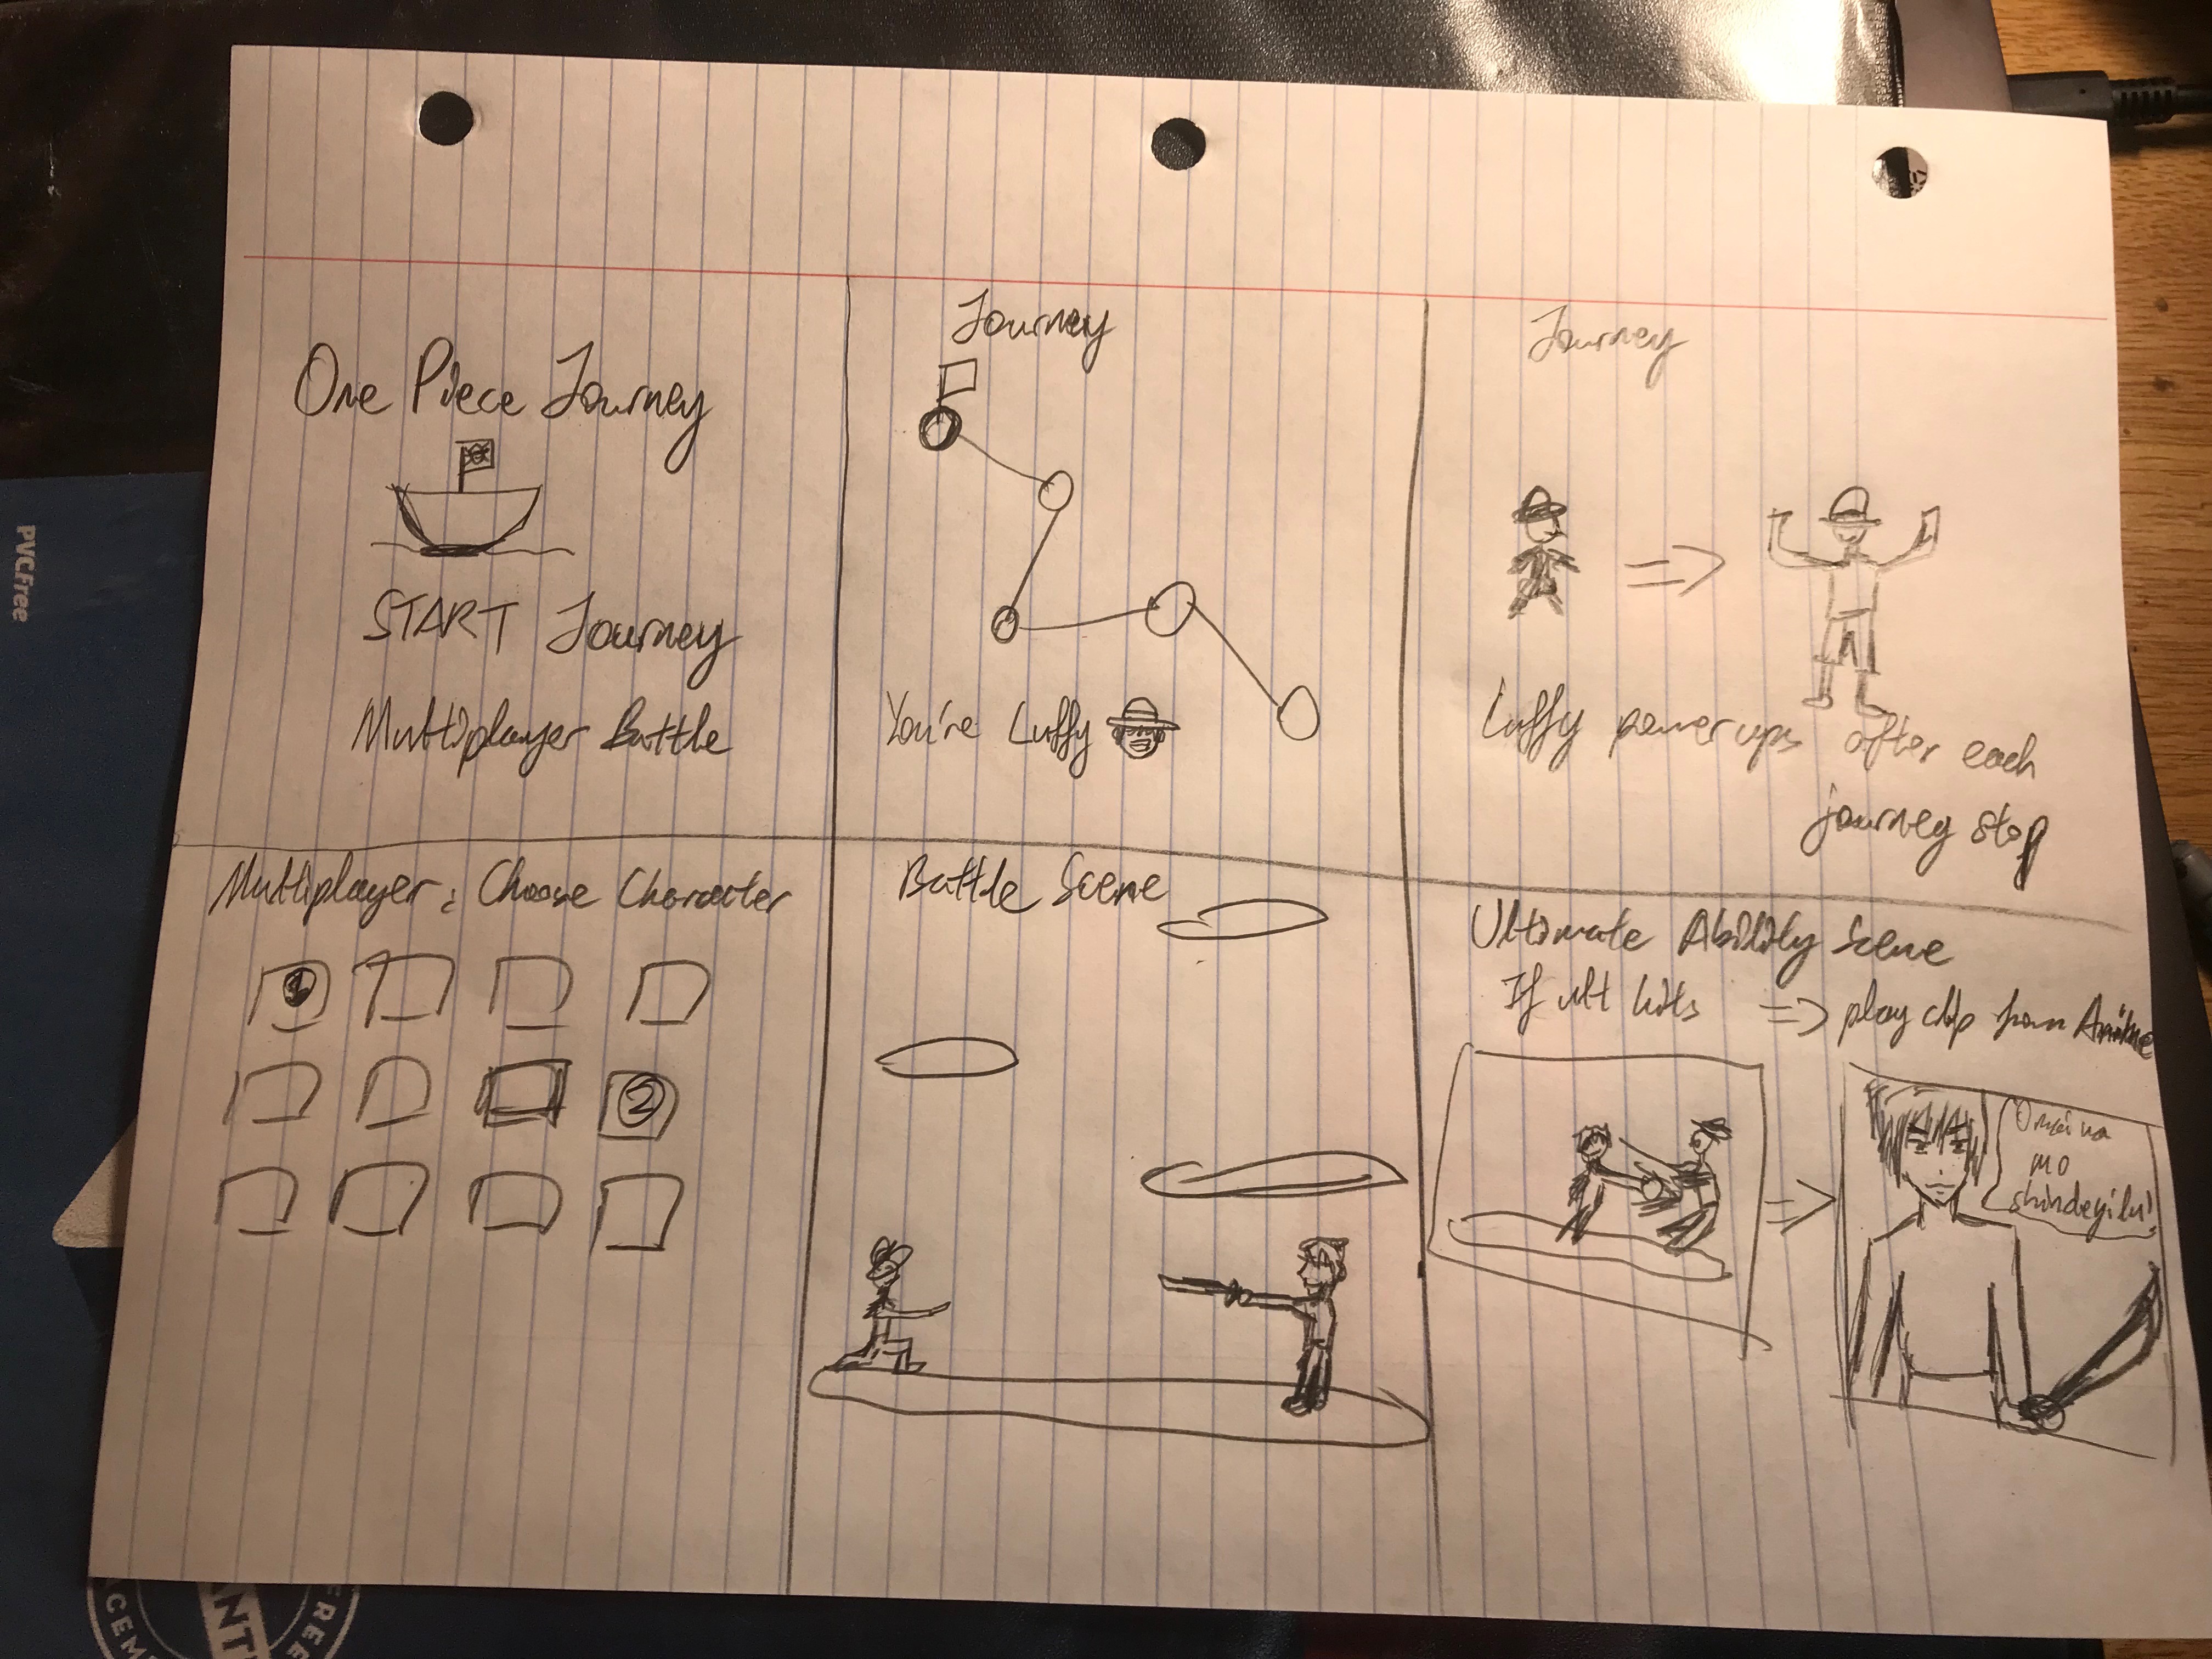 One Piece Journey
START Journey
Multiplayer Battle
Journey
You're Luffy
Journey
Luffy powerups after each
journey stop
Multiplayer: Choose Character
1
2
Battle Scene
Ultimate Ability Scene
If ult hits => play clip from Anime
Omaiwa
mo
shindeyilu!
PVCfree